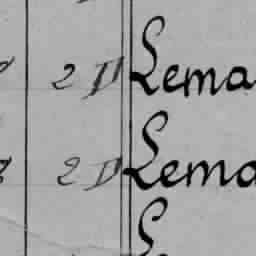 2 D Lema
2 D Lema